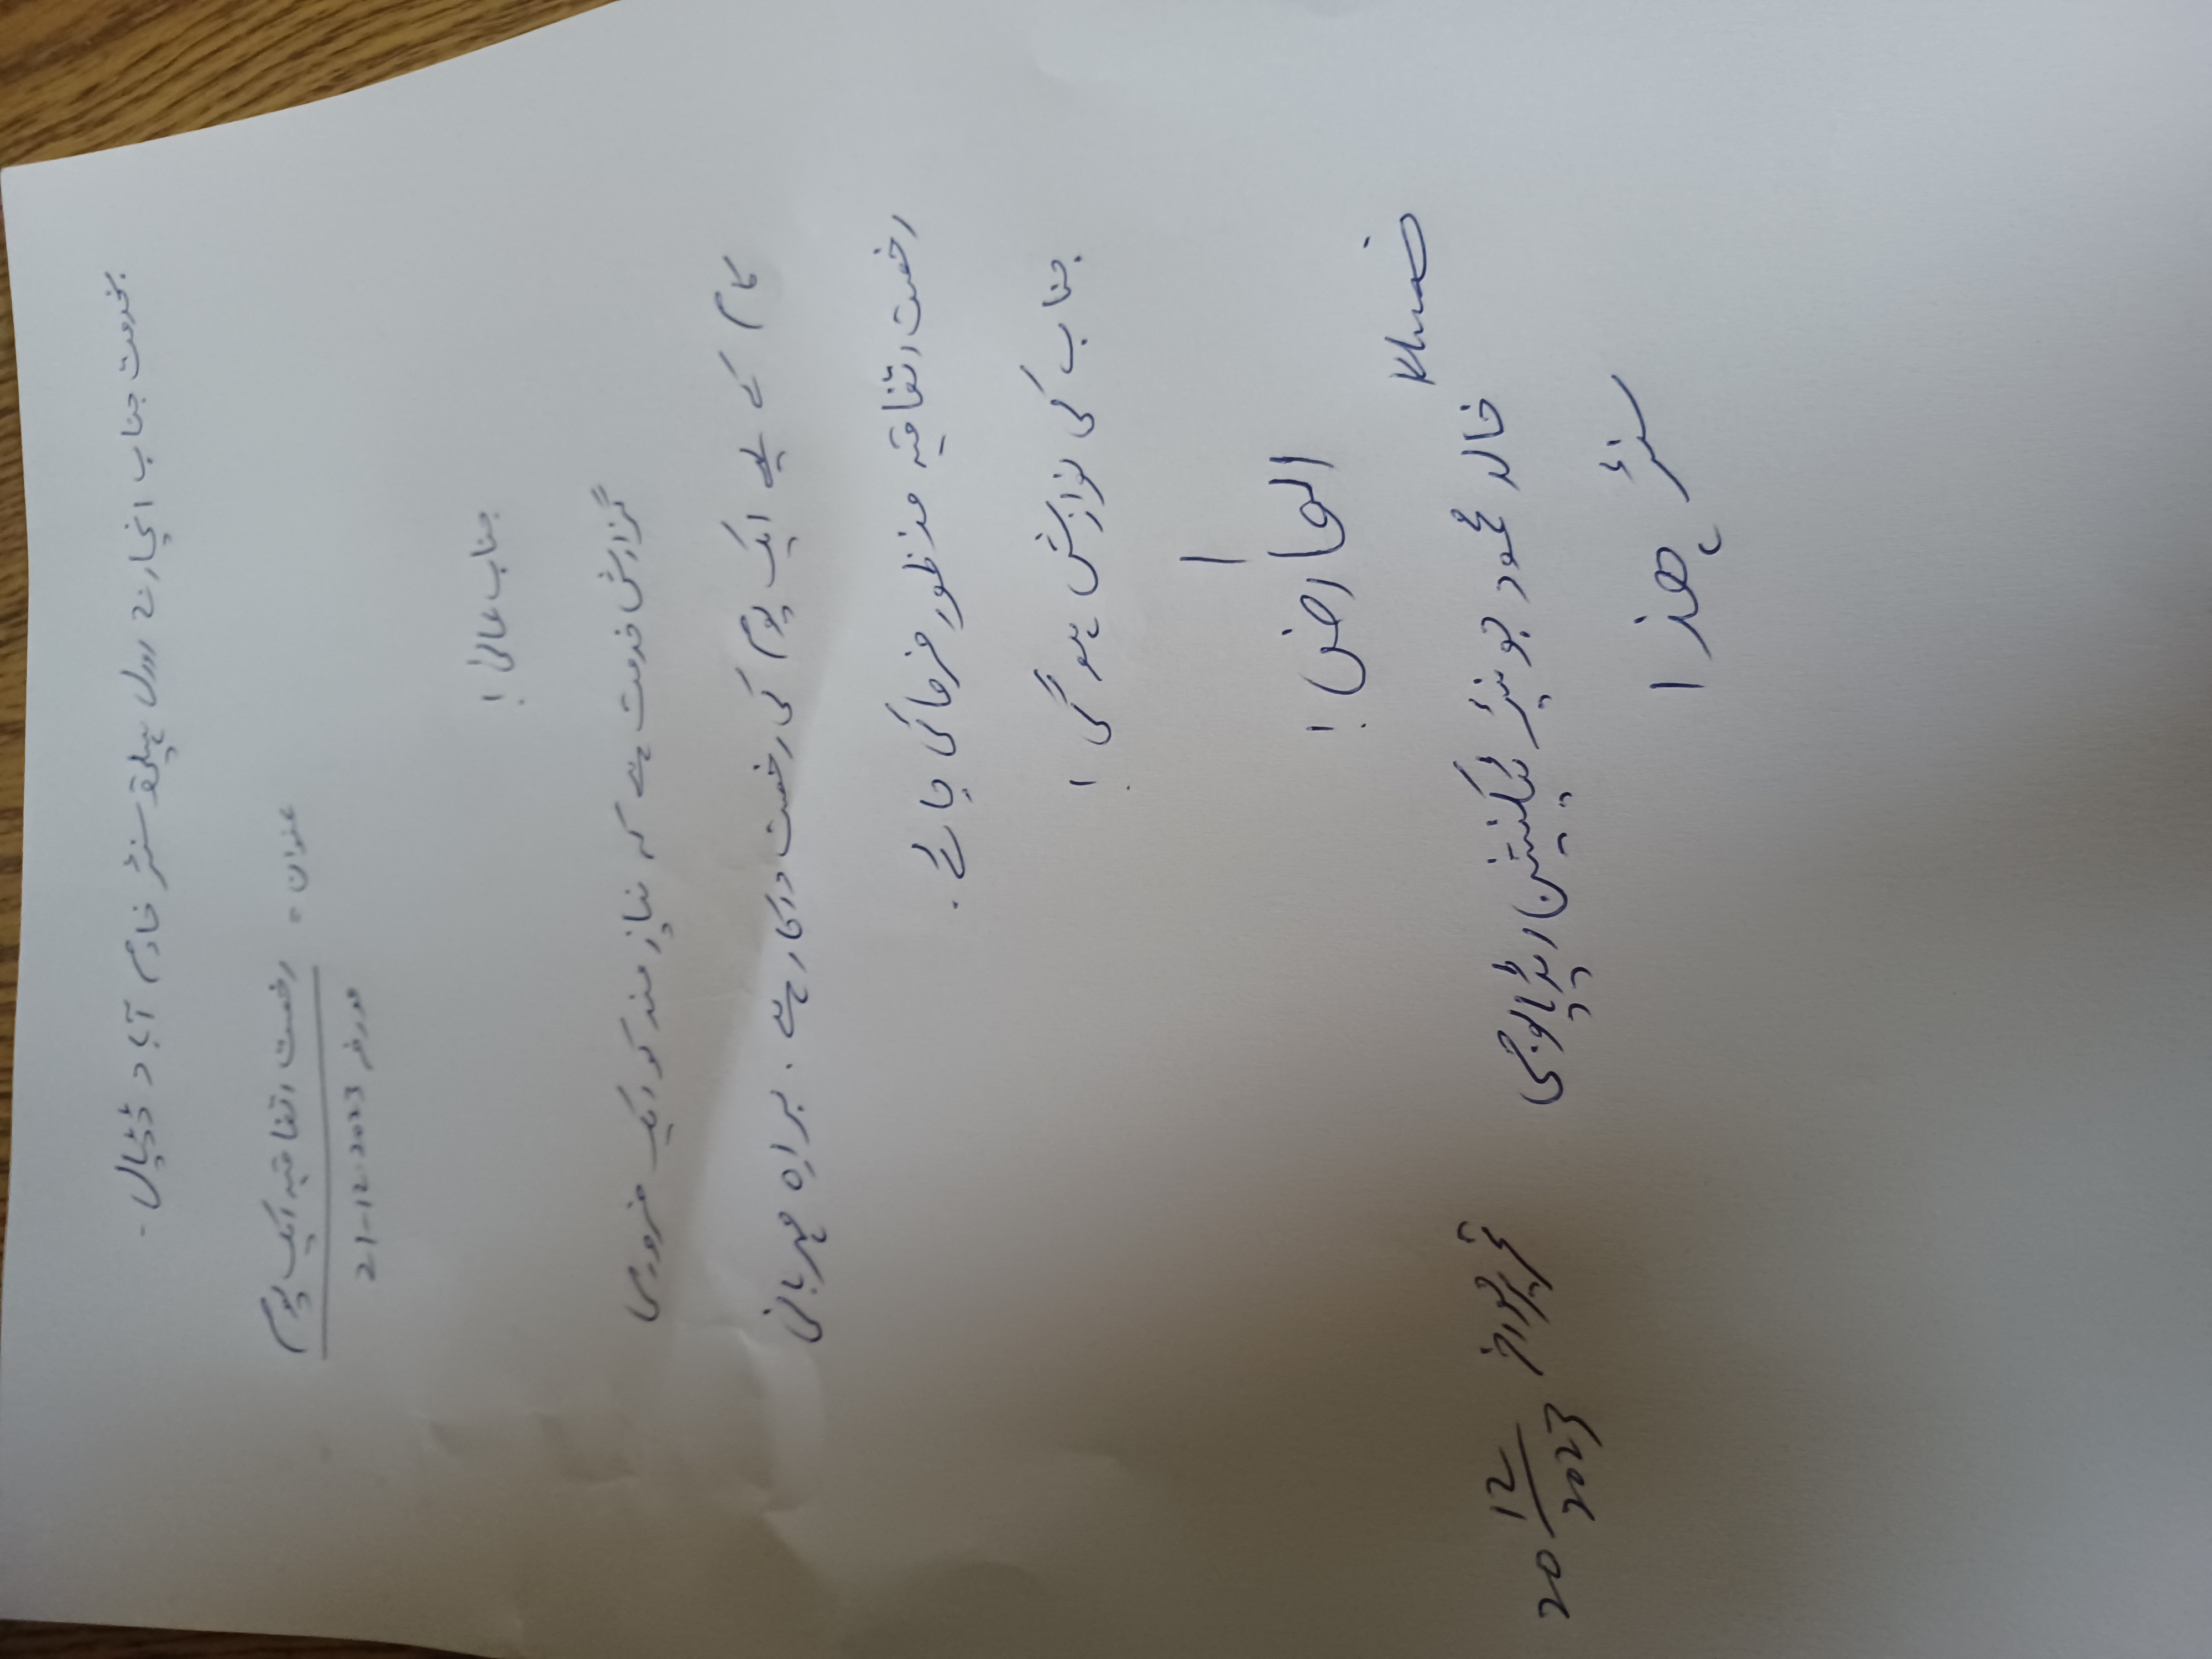 بخدمت جناب انچارج رورل ہیلتھ سنٹر خادم آباد ڈڈیال۔
عنوان = رخصت اتفاقیہ ایک یوم
مورخہ 21-12-2023
جناب عالیٰ!
گزارش خدمت ہے کہ نیاز مند کو ایک ضروری
کام کے لیے ایک یوم کی رخصت درکار ہے۔ براہ مہربانی
رخصت اتفاقیہ منظور فرمائی جائے۔
جناب کی نوازش ہو گی!
العارض!
خالد محمود جونیئر ٹیکنیشن ریڈیالوجی تحریر مورخہ 20 12/2023
سنٹر ہذا